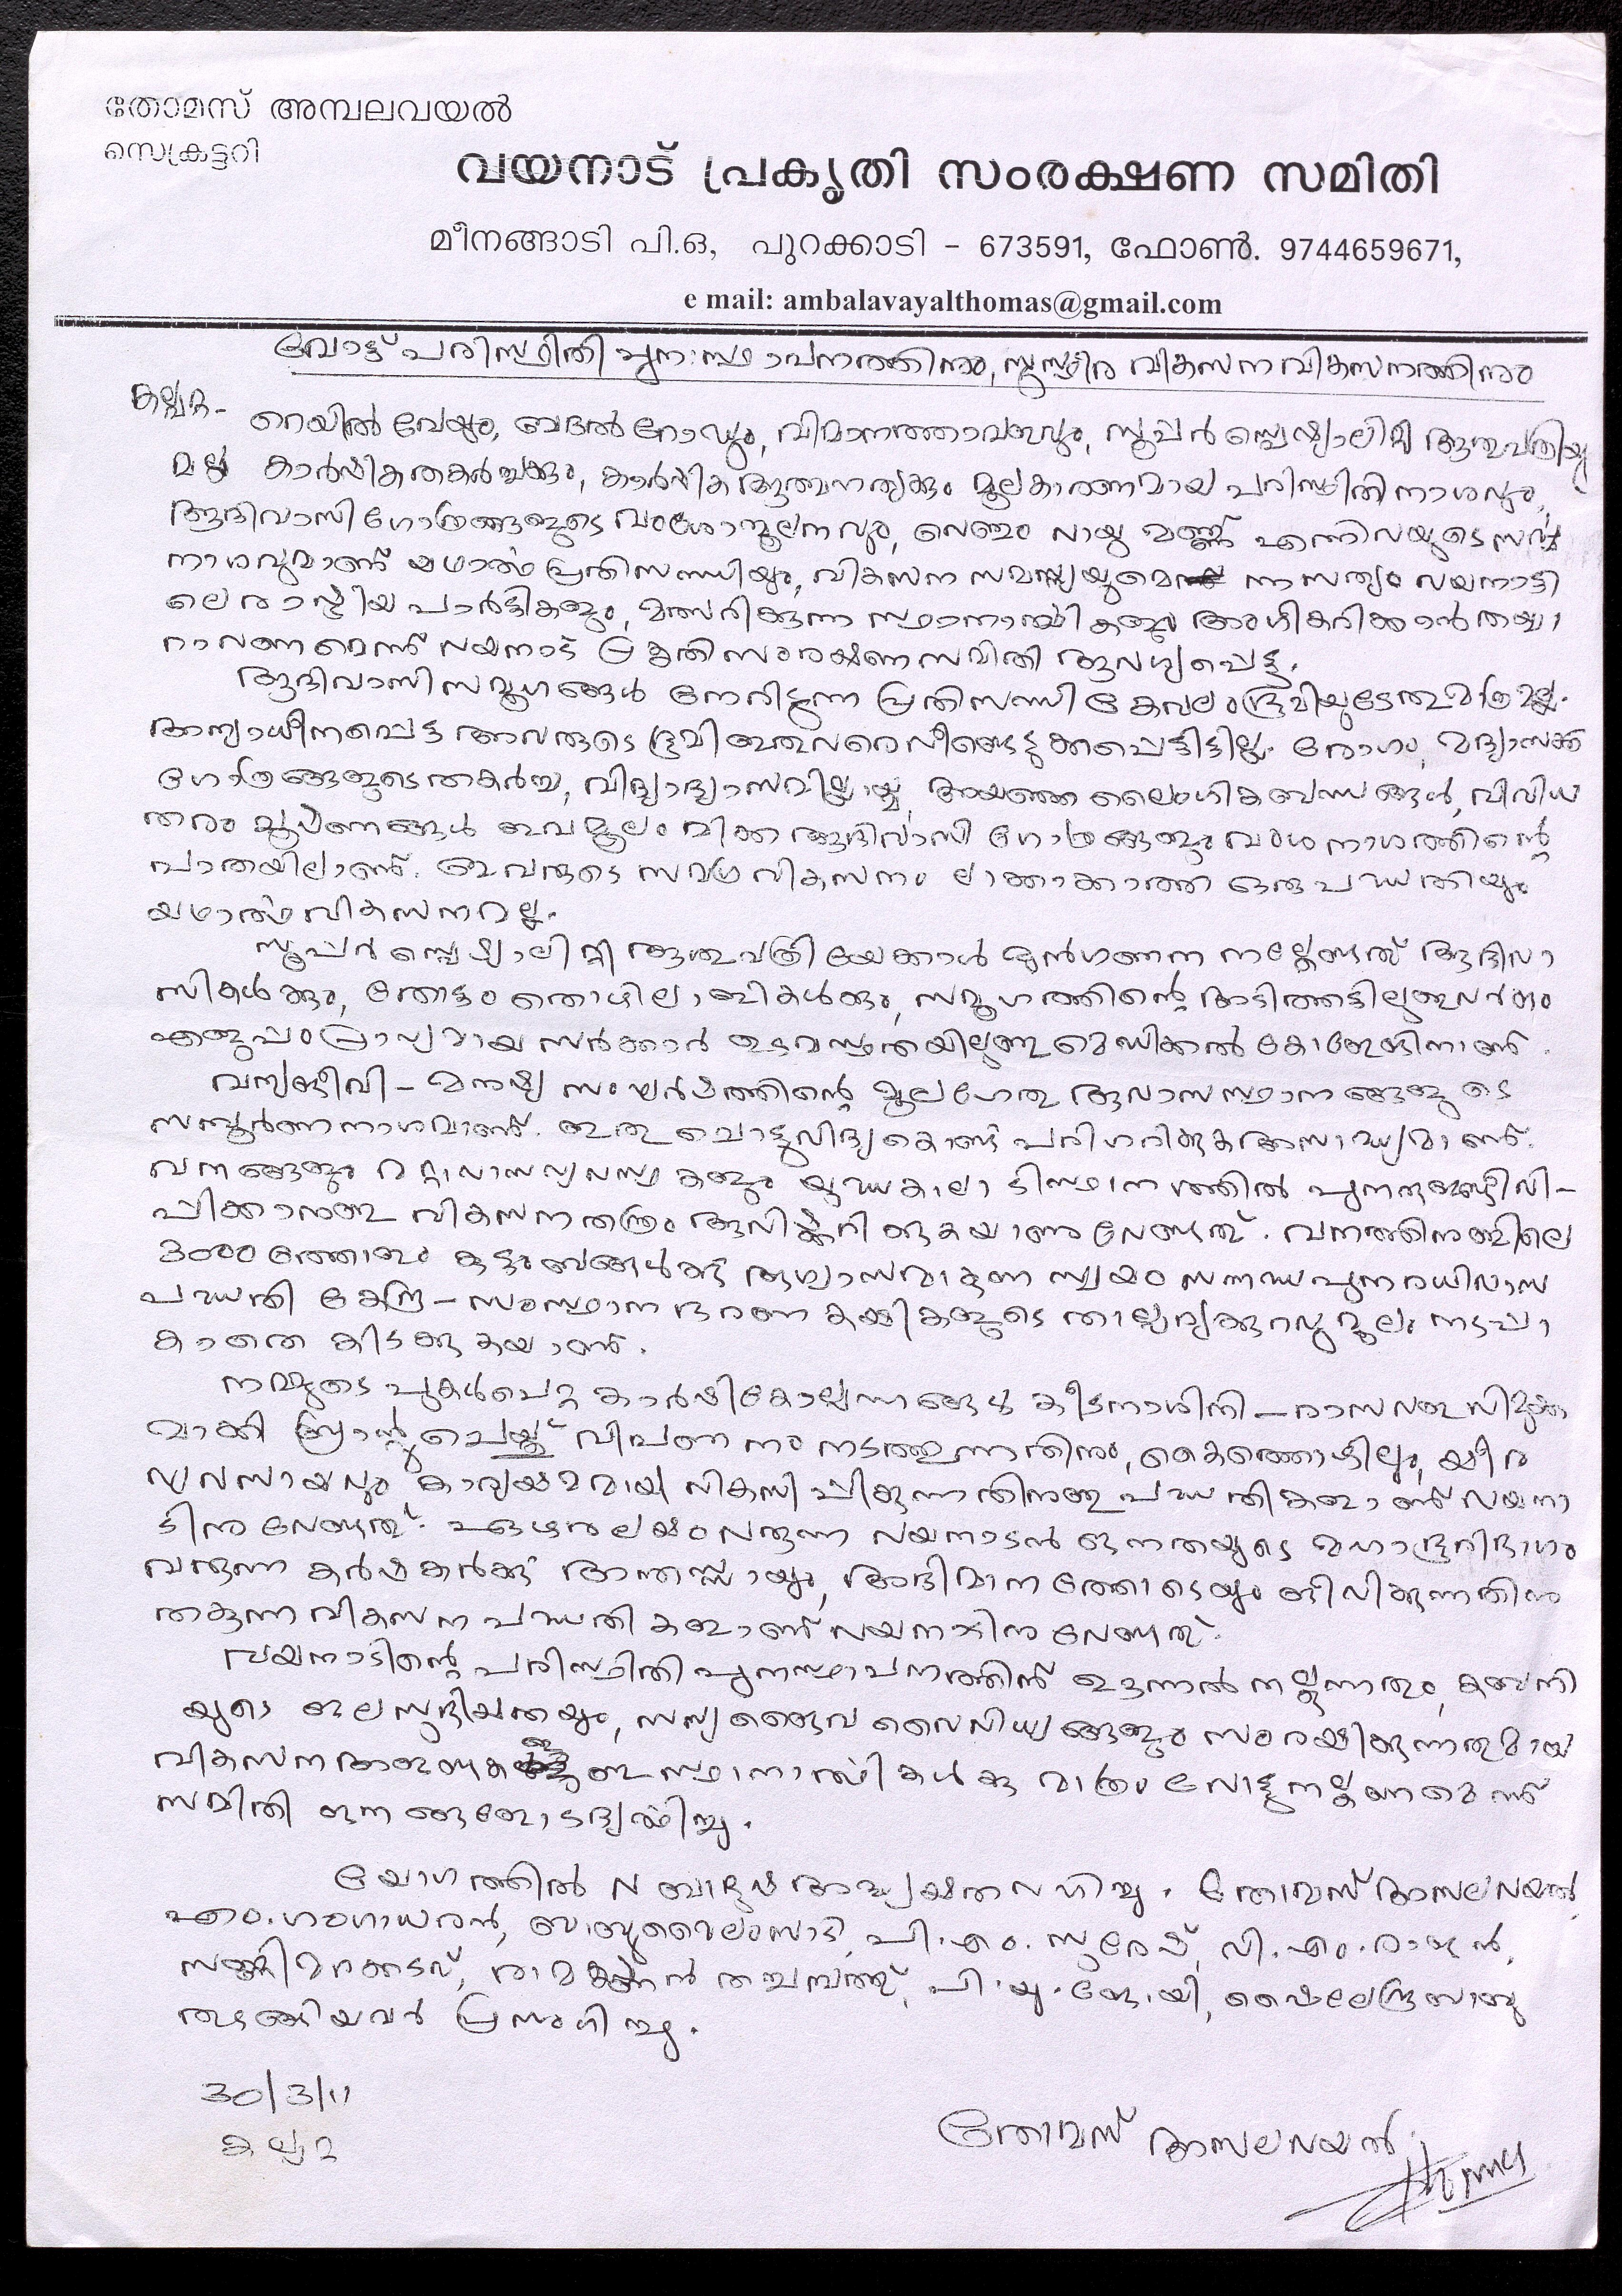 തോമസ് അമ്പലവയൽ
സെക്രട്ടറി
വയനാട് പ്രകൃതി സംരക്ഷണ സമിതി
മീനങ്ങാടി പി.ഒ, പുറക്കാടി - 673591, ഫോൺ. 9744659671,
e mail: ambalavayalthomas@gmail.com
വോട്ട് പരിസ്ഥിതി പുന:സ്ഥാപനത്തിനും, സുസ്ഥിര വികസന വികസനത്തിനും
കല്പറ്റ - റെയിൽവേയും, ബദൽ റോഡും, വിമാനത്താവളവും, സൂപ്പർ സ്പെഷ്യാലിറ്റി ആശുപത്രിയു
മല്ല കാർഷിക തകർച്ചക്കും, കാർഷിക ആത്മഹത്യക്കും മൂലകാരണമായ പരിസ്ഥിതി നാശവും,
ആദിവാസി ഗോത്രങ്ങളുടെ വംശോന്മൂലനവും, വെള്ളം വായു മണ്ണ് എന്നിവയുടെ സർവ്വ
നാശവുമാണ് യഥാർത്ഥ പ്രതിസന്ധിയും, വികസന സമസ്യയുമെ ന്ന സത്യം വയനാട്ടി
ലെ രാഷ്ട്രീയ പാർട്ടികളും, മത്സരിക്കുന്ന സ്ഥാനാർത്ഥികളും അംഗീകരിക്കാൻ തയ്യാ
റാവണമെന്ന് വയനാട് പ്രകൃതി സംരക്ഷണ സമിതി ആവശ്യപ്പെട്ടു.
ആദിവാസി സമൂഹങ്ങൾ നേരിടുന്ന പ്രതിസന്ധി കേവലം ഭൂമിയുടേതു മാത്രമല്ല.
അന്യാധീനപ്പെട്ട അവരുടെ ഭൂമി ഇതുവരെ വീണ്ടെടുക്കപ്പെട്ടിട്ടില്ല. രോഗം, മദ്യാസക്തി
ഗോത്രങ്ങളുടെ തകർച്ച, വിദ്യാഭ്യാസമില്ലായ്മ, അയഞ്ഞ ലൈംഗിക ബന്ധങ്ങൾ, വിവിധ
തരം ചൂഷണങ്ങൾ ഇവമൂലം മിക്ക ആദിവാസി ഗോത്രങ്ങളും വംശനാശത്തിന്റെ
പാതയിലാണ്. ഇവരുടെ സമഗ്ര വികസനം ലാക്കാക്കാത്ത ഒരു പദ്ധതിയും
യഥാർത്ഥ വികസനമല്ല.
സൂപ്പർ സ്പെഷ്യാലിറ്റി ആശുപത്രിയേക്കാൾ മുൻഗണന നല്കേണ്ടത് ആദിവാ
സികൾക്കും, തോട്ടം തൊഴിലാളികൾക്കും, സമൂഹത്തിന്റെ അടിത്തട്ടിലുള്ളവർക്കും
എളുപ്പം പ്രാപ്യമായ സർക്കാർ ഉടമസ്ഥതയിലുള്ള മെഡിക്കൽ കോളേജിനാണ്.
വന്യജീവി - മനുഷ്യ സംഘർഷത്തിന്റെ മൂലഹേതു ആവാസസ്ഥാനങ്ങളുടെ
സമ്പൂർണ്ണ നാശമാണ്. ഇതു ചൊട്ടുവിദ്യകൊണ്ട് പരിഹരിക്കുക അസാദ്ധ്യമാണ്.
വനങ്ങളും മറ്റാവാസ വ്യവസ്ഥകളും യുദ്ധകാലാടിസ്ഥാനത്തിൽ പുനരുജ്ജീവി-
പ്പിക്കാനുള്ള വികസന തന്ത്രം ആവിഷ്കരിക്കുകയാണു വേണ്ടത്. വനത്തിനുള്ളിലെ
3000 ത്തോളം കുടുംബങ്ങൾക്ക് ആശ്വാസമാകുന്ന സ്വയം സന്നദ്ധ പുനരധിവാസ
പദ്ധതി കേന്ദ്ര - സംസ്ഥാന ഭരണ കക്ഷികളുടെ താല്പര്യക്കുറവു മൂലം നടപ്പാ
കാതെ കിടക്കുകയാണ്.
നമ്മുടെ പുകൾപെറ്റ കാർഷികോല്പന്നങ്ങൾ കീടനാശിനി - രാസവള വിമുക്ത
മാക്കി ബ്രാന്റു ചെയ്ത് വിപണനം നടത്തുന്നതിനും, കൈത്തൊഴിലും, ക്ഷീര
വ്യവസായവും കാര്യക്ഷമമായി വികസിപ്പിക്കുന്നതിനുള്ള പദ്ധതികളാണ് വയനാ
ടിനു വേണ്ടത്. ഏഴര ലക്ഷം വരുന്ന വയനാടൻ ജനതയുടെ മഹാഭൂരിഭാഗം
വരുന്ന കർഷകർക്ക് അന്തസ്സായും, അഭിമാനത്തോടെയും ജീവിക്കുന്നതിനു
തകുന്ന വികസന പദ്ധതികളാണ് വയനാടിനു വേണ്ടത്.
വയനാടിന്റെ പരിസ്ഥിതി പുനസ്ഥാപനത്തിന് ഊന്നൽ നല്കുന്നതും, കബനി
യുടെ ജലസമൃദ്ധിയും, സസ്യ ജൈവ വൈവിധ്യങ്ങളും സംരക്ഷിക്കുന്നതുമായ
വികസന അജണ്ടകളുള്ള സ്ഥാനാർത്ഥികൾക്കു മാത്രം വോട്ടു നല്കണമെന്ന്
സമിതി ജനങ്ങളോടഭ്യർത്ഥിച്ചു.
യോഗത്തിൽ അദ്ധ്യക്ഷത വഹിച്ചു. തോമസ് അമ്പലവയൽ,
എം. ഗംഗാധരൻ, ബാബു മൈലമ്പാടി, പി. എം. സുരേഷ്, വി. എം. രാജൻ,
സണ്ണി മരക്കടവ്, രാമകൃഷ്ണൻ തച്ചമ്പത്ത്, ശൈലേന്ദ്രബാബു
തുടങ്ങിയവർ പ്രസംഗിച്ചു.
30/3/11
കല്പറ്റ
തോമസ് അമ്പലവയൽ